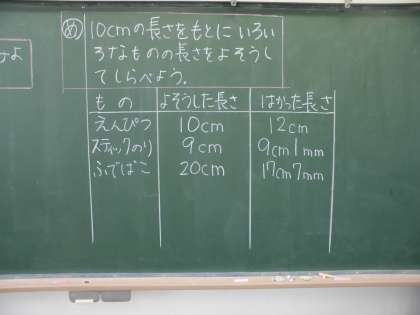 め 10cmの長さをもとにいろい
ろなものの長さをよそうし
てしらべよう。
もの よそうした長さ はかった長さ
えんぴつ 10cm 12cm
スティックのり 9cm 9cm1mm
ふでばこ 20cm 17cm7mm